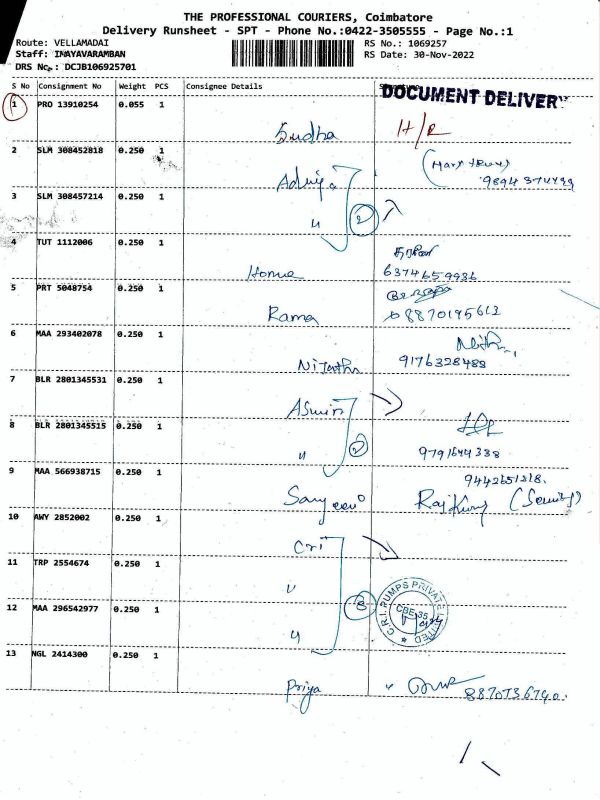 THE PROFESSIONAL COURIERS, Coimbatore
Delivery Runsheet - SPT - Phone No.:0422-3505555 - Page No.:1
Route: VELLAMADAI
Staff: INAYAVARAMBAN
DRS No.: DCJB106925701
RS No.: 1069257
RS Date: 30-Nov-2022
S No Consignment No Weight PCS Consignee Details
DOCUMENT DELIVER
1 PRO 13910254 0.055 1
Sudha H/R
2 SLM 308452818 0.250 1
3 SLM 308457214 0.250 1
2
4 TUT 1112006 0.250 1
Home
6374659936
5 PRT 5048754 0.250 1
Rama 8870195612
6 MAA 293402078 0.250 1
9176328488
7 BLR 2801345531 0.250 1
Aswin
8 BLR 2801345515 0.250 1
2
9 MAA 566938715 0.250 1
Rajkumar
10 AWY 2852002 0.250 1
Cri
11 TRP 2554674 0.250 1
12 MAA 296542977 0.250 1
3
C.R.I. PUMPS PRIVATE LIMITED
CBE-35
13 NGL 2414300 0.250 1
Priya 8870736740